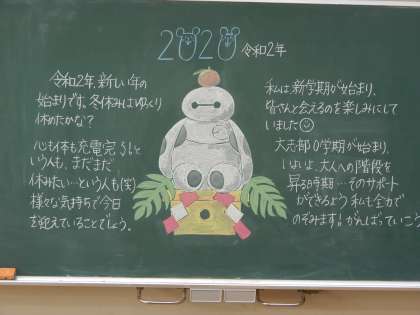 2020 令和2年
令和2年、新しい年の
始まりです。冬休みはゆっくり
休めたかな？
心も体も充電完了！と
いう人も、まだまだ
休みたい…という人も(笑)
様々な気持ちで今日
を迎えていることでしょう。
私は新学期が始まり、
皆さんと会えるのを楽しみにして
いました
大志部0学期が始まり、
いよいよ、大人への階段を
昇る時期…そのサポート
ができるよう 私も全力で
のぞみます！がんばっていこう